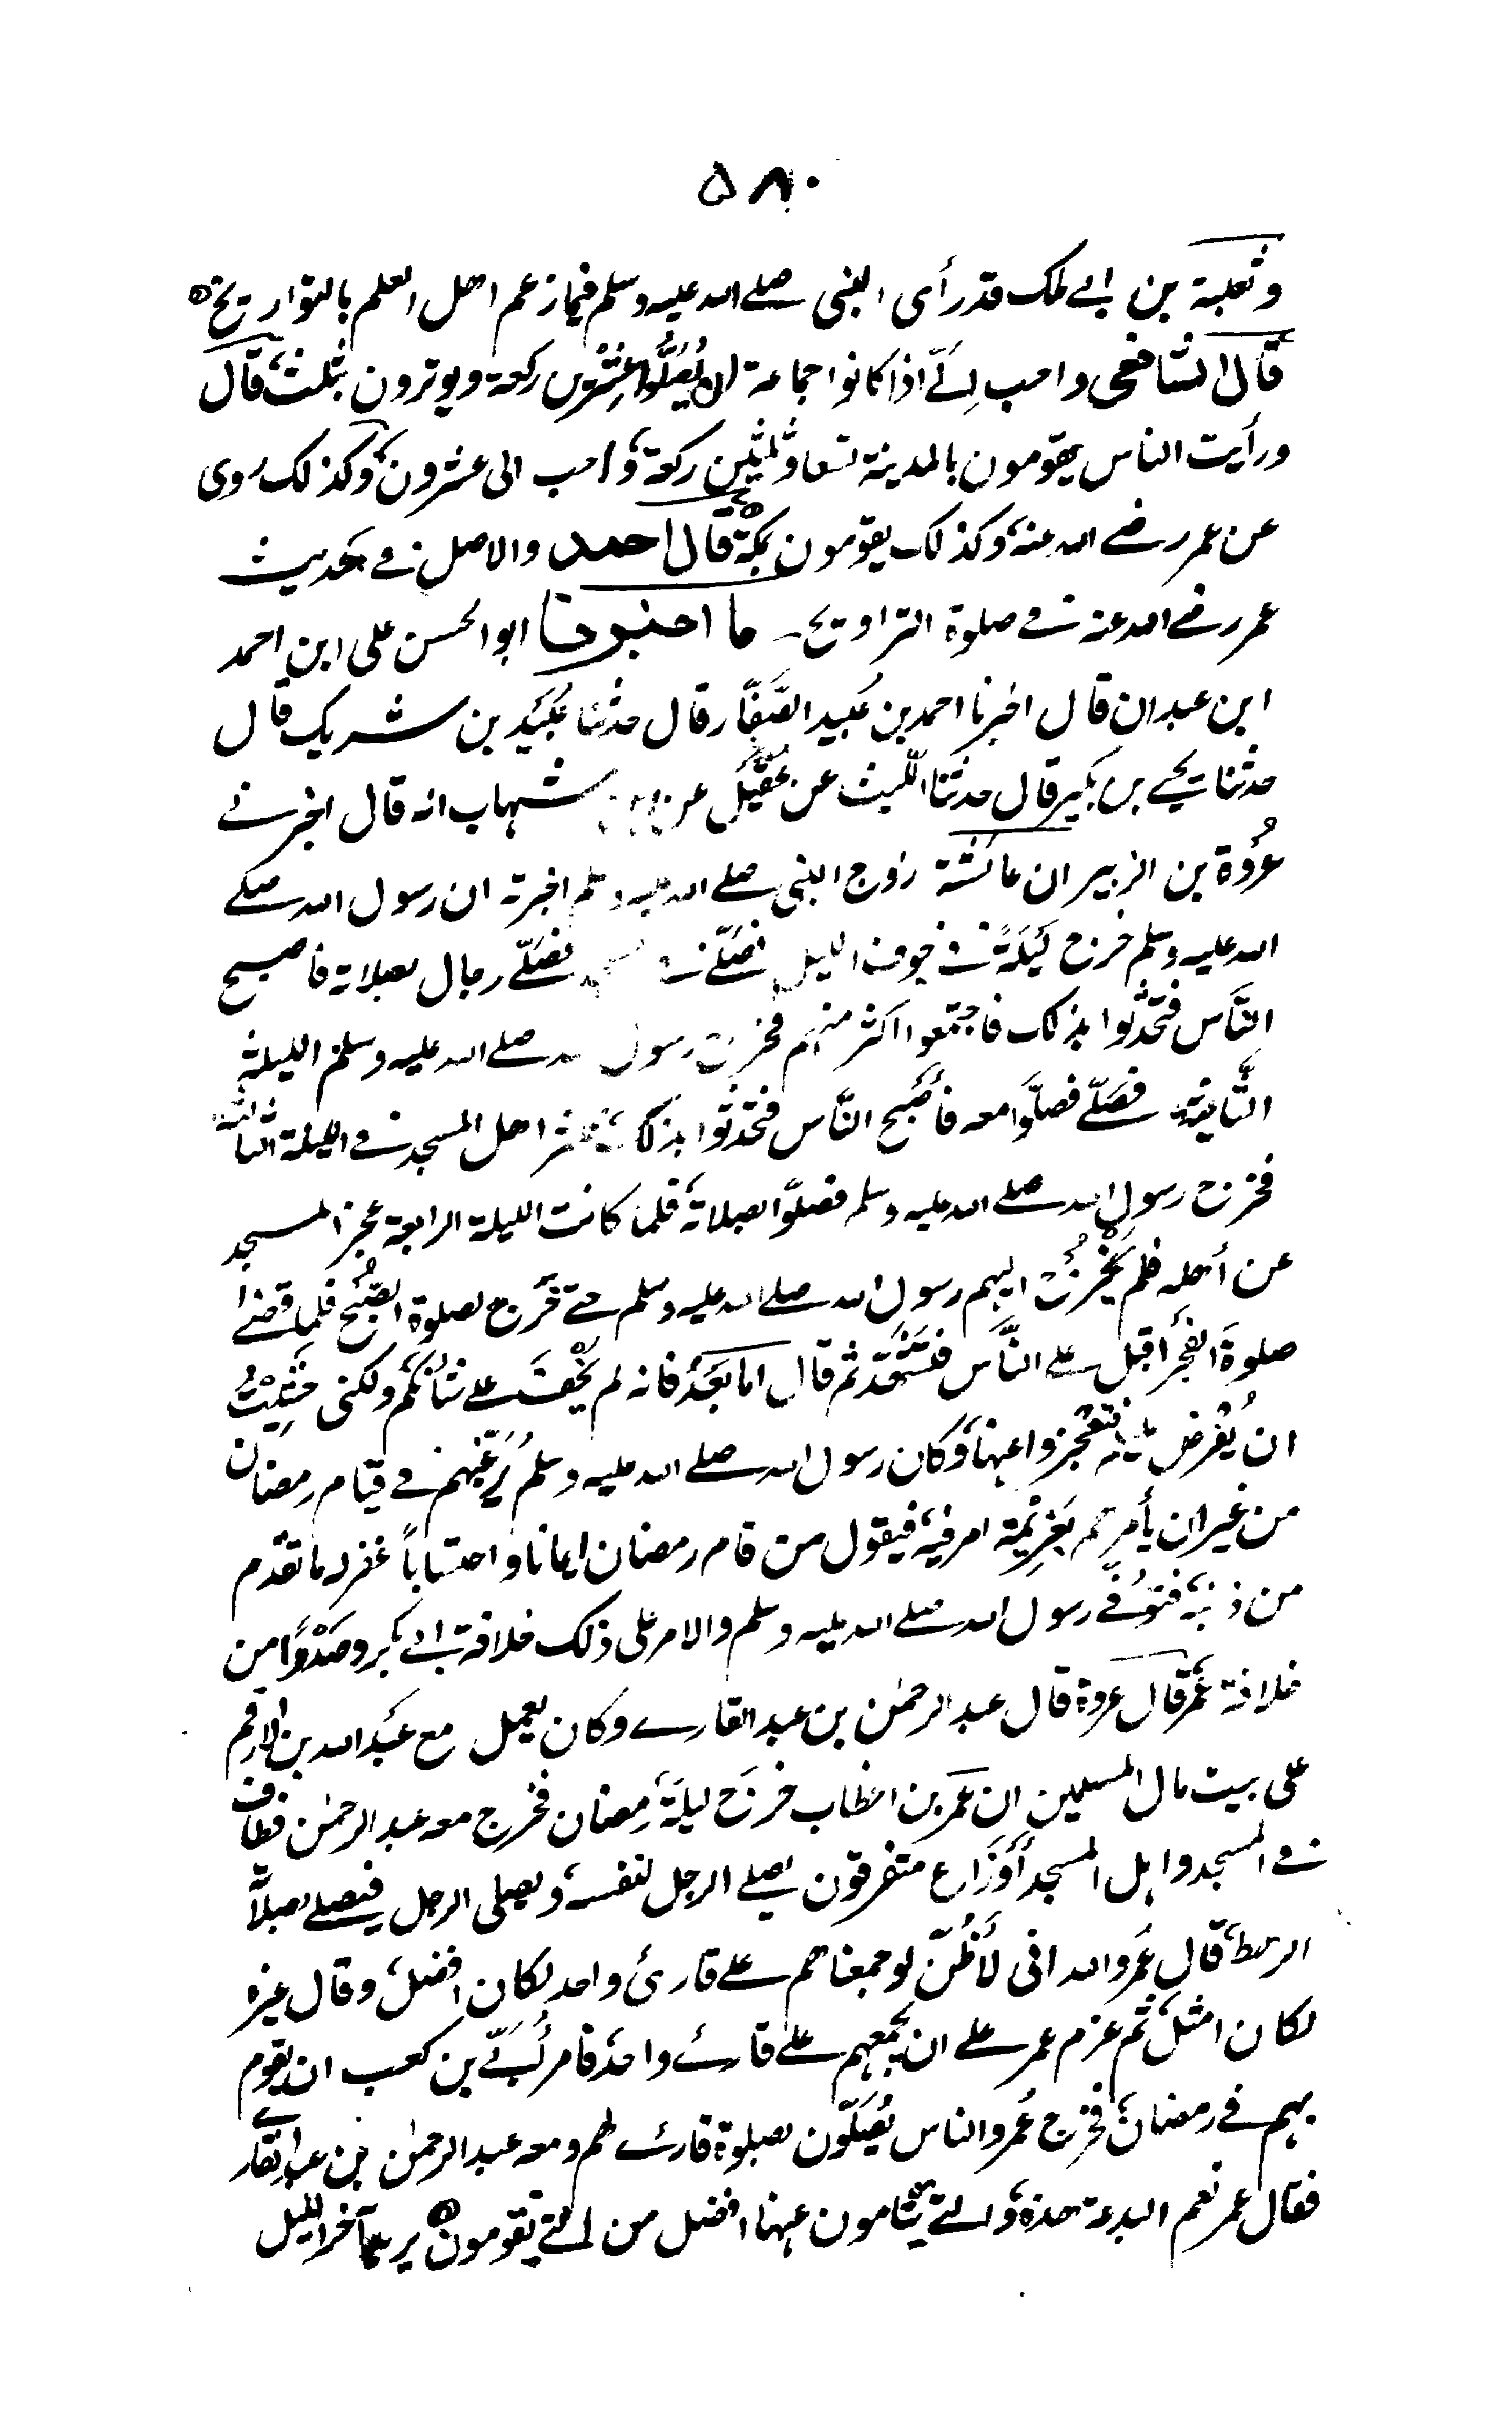 ۵۸۰
وثعلبة بن ابي ملك قد رأى النبي صلے الله عليه وسلم فيما زعم اهل العلم بالتواريخ ه
قال الشافعي واحب لِىَّ اذا كانوا جماعة ان يُصَلُّوا عشرين ركعة ويوترون بثلث، قال
ورأيت الناس يقومون بالمدينة تسعا وثلٰثين ركعة، واحب الى عشرون، وكذلك روى
عن عمر رضے الله عنه، وكذلك يقومون بمكة ه قال احمد والاصل فے حديث
عمر رضے الله عنه فے صلوة التراويح۔ ما اخبرنا ابو الحسن على ابن احمد
ابن عبدان قال اخبرنا احمد بن عُبيد الصَّفَّار قال حدثنا عُبَيْد بن شريك قال
حدثنا يحيے بن بكير قال حدثنا اللَّيث عن عُقَيْل عن ابن شهاب انه قال اخبرنے
عُرْوة بن الزبير ان عائشة زوج النبي صلے الله عليه وسلم اخبرته ان رسول الله صلے
الله عليه وسلم خرج لَيْلَةً فے جوف الليل فصَلّے فے المسجد فصَلّے رجال بصلاته فاصبح
النَّاس فتحَدَّثوا بذلك فاجتمعوا اكثر منهم فخرج رسول الله صلے الله عليه وسلم الليلة
الثَّانية فصَلّے فصلَّوا معه فأصْبح النَّاس فتحَدَّثوا بذلك، فكثر اهل المسجد فے الليلة الثالثة
فخرج رسول الله صلے الله عليه وسلم فصلَّوا بصلاته، فلما كانت الليلة الرابعة عجز المسجد
عن أهله فلم يَخْرُجْ اليهم رسول الله صلے الله عليه وسلم حتے خَرج لصلوة الصُّبح فلما قضے
صلوةَ الفَجْر اقبل علے النَّاس فتَشَهَّد ثم قال اما بَعْدُ فانه لم يَخْفَ علے شأنكم ولكنى خَشِيْتُ
ان يُفْرض عليكم فتعْجِزوا عنها، وكان رسول الله صلے الله عليه وسلم يُرَغِّبُهم فے قيام رمضان
من غير ان يأمرهم بعَزِيْمة امر فيه، فيقول من قام رمضان ايمانا واحتساباً غفر له ما تقدّم
من ذنبه، فتوُفّے رسول الله صلے الله عليه وسلم والامر على ذلك خلافة ابے بكر وصَدْرًا من
خلافة عُمَر قال عروة قال عبد الرحمٰن بن عبد القارے وكان يعمل مع عَبْد الله بن الارقم
على بيت مال المسلمين ان عُمَر بن الخطاب خرَج ليلَةَ رمضان فخرج معه عبد الرحمٰن فطاف
فے المسجد واہل المسجد أوْزَاع متفرقون يصلے الرجل لنفسه، ويصلى الرجل فيصلے بصلاته
الرهط، قال عُمَر والله انى لَأَظُنّ لو جمعناهم علے قارئ واحد لكان افضل، وقال غيره
لكان امثل، ثم عزم عمر علے ان يجمعهم علے قارئ واحد، فامر اُبَىّ بن كعب ان يقوم
بهم فے رمضان، فخرج عُمر والناس يُصَلّون بصلوة قارئ لهم ومعه عبد الرحمٰن بن عبد القارے
فقال عمر نعم البدعة هذه، والتے تنامون عنها افضل من التے تقومون ه يريد آخر الليل